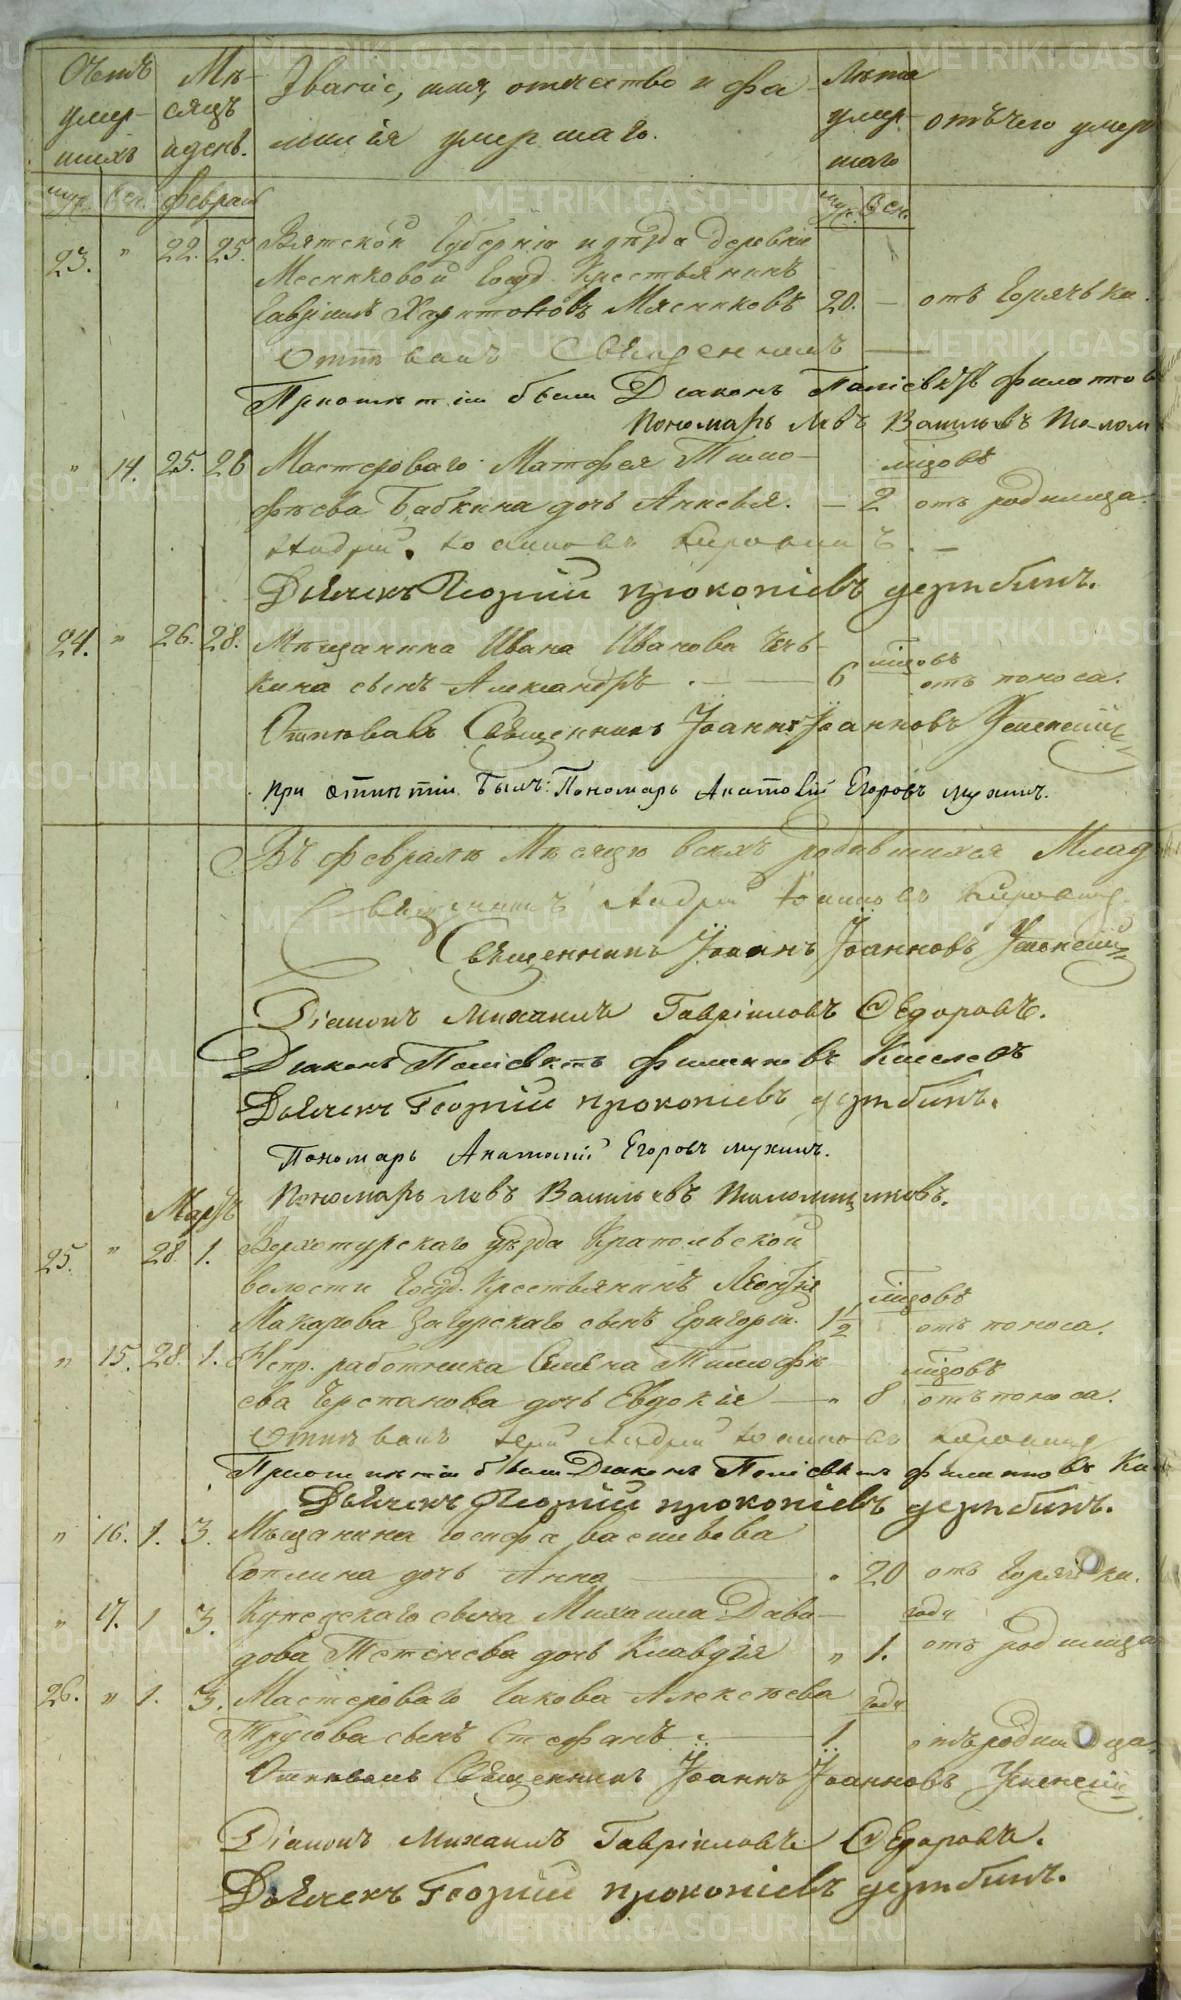 Счетъ умер- шихъ
Мѣ- сяцъ и день.
Званіе, имя, отчество и фа- милія умершаго.
Лѣта умер- шаго
отъ чего умер
муж. жен. февраль муж. жен.
23. " 22. 25. Вятской Губерніи и уѣзда деревни
Месниковой Госуд. Крестьянинъ
Гавріилъ Харитоновъ Мясниковъ 20. — отъ Горячки.
Отпѣвалъ Священникъ
При отпѣтіи были Діаконъ Поліевктъ Филипповъ
Пономарь Левъ Васильевъ Толом
" 14. 25. 28 Мастероваго Матфея Тимо- мѣсцовъ
фѣева Бабкина дочь Анисья. — 2 отъ родимца.
Андрей Іоанновъ
Дьячекъ Георгій Прокопіевъ Дерябинъ.
24. " 26. 28. Мѣщанина Ивана Иванова мѣсцовъ
кина сынъ Александръ. — 6 отъ поноса.
Отпѣвалъ Священникъ Іоаннъ Іоанновъ Успенскій
при отпѣтіи былъ: Пономарь Анатолій Егоровъ Мухинъ.
Въ февралѣ Мѣсяцѣ всехъ родившихся Млад
Священникъ Андрей Іоанновъ
Священникъ Іоаннъ Іоанновъ Успенскій
Діаконъ Михаилъ Гавріиловъ Ѳедоровъ.
Діаконъ Поліевктъ Филипповъ Киселевъ
Дьячекъ Георгій Прокопіевъ Дерябинъ.
Пономарь Анатолій Егоровъ Мухинъ.
Пономарь Левъ Васильевъ
Мартъ
25. " 28. 1. Верхотурскаго уѣзда
волости Госуд. Крестьянина Леонтія мѣсцовъ
Макарова Загурскаго сынъ Григорій. 1½ отъ поноса.
" 15. 28. 1. Непр. работника Семена Тимофѣ- мѣсцовъ
ева Черепанова дочь Евдокія — " 8 отъ поноса.
Отпѣвалъ Іерей Андрей Іоанновъ
При отпѣтіи были Діаконъ Поліевктъ Филипповъ Ки
Дьячекъ Георгій Прокопіевъ Дерябинъ.
" 16. 1. 3. Мѣщанина Іосифа Васильева
дочь Анна — " 20 отъ Горячки.
" 17. 1 3. Купецкаго сына Михаила Давы- годъ
дова Тетенева дочь Клавдія " 1. отъ родимца
26. " 1. 3. Мастероваго Іакова Алексѣева годъ
Трусова сынъ Стефанъ — 1 отъ родимца.
Отпѣвалъ Священникъ Іоаннъ Іоанновъ Успенскій
Діаконъ Михаилъ Гавріиловъ Ѳедоровъ.
Дьячекъ Георгій Прокопіевъ Дерябинъ.
METRIKI.GASO-URAL.RU